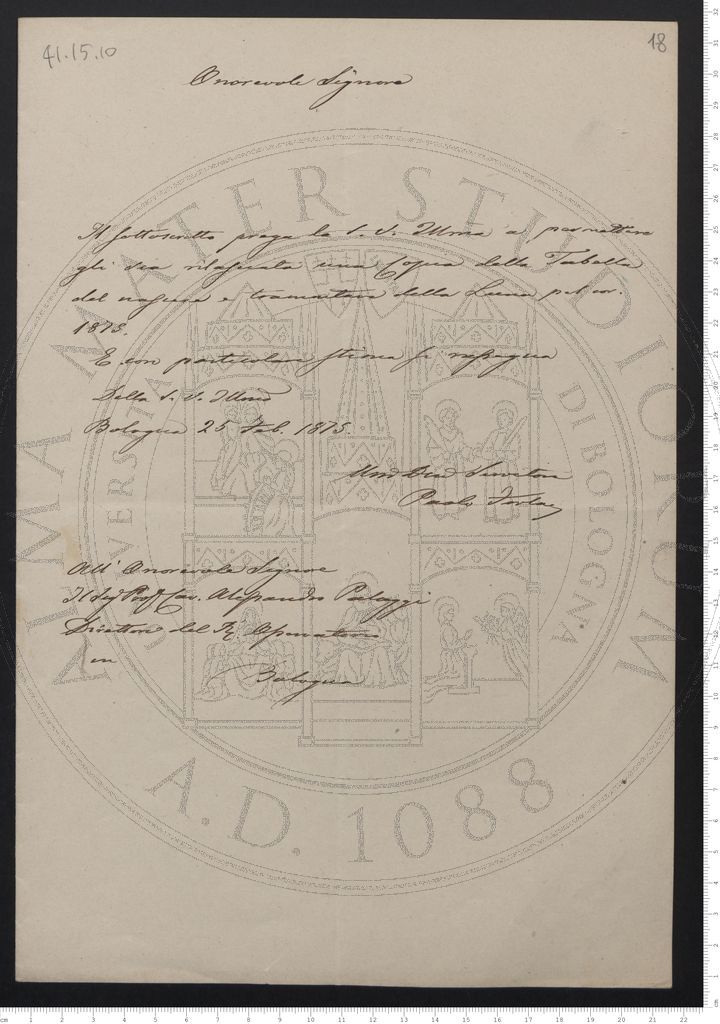 41.15.10
18
Onorevole Signore
Il sottoscritto prega la S. V. Illma a permettere
gli sia rilasciata una Copia della Tabella
del nascere e tramontare della Luna pel cor.
1875.
E con particolare stima si rassegna
Della S. V. Illma
Bologna 25 Feb. 1875.
Servitore
Paolo
All' Onorevole Signore
Il Sig Prof Cav. Alessandro Palagi
Direttore del R. Osservatorio
in
Bologna
ALMA MATER STUDIORUM
UNIVERSITÀ DI BOLOGNA
A.D. 1088